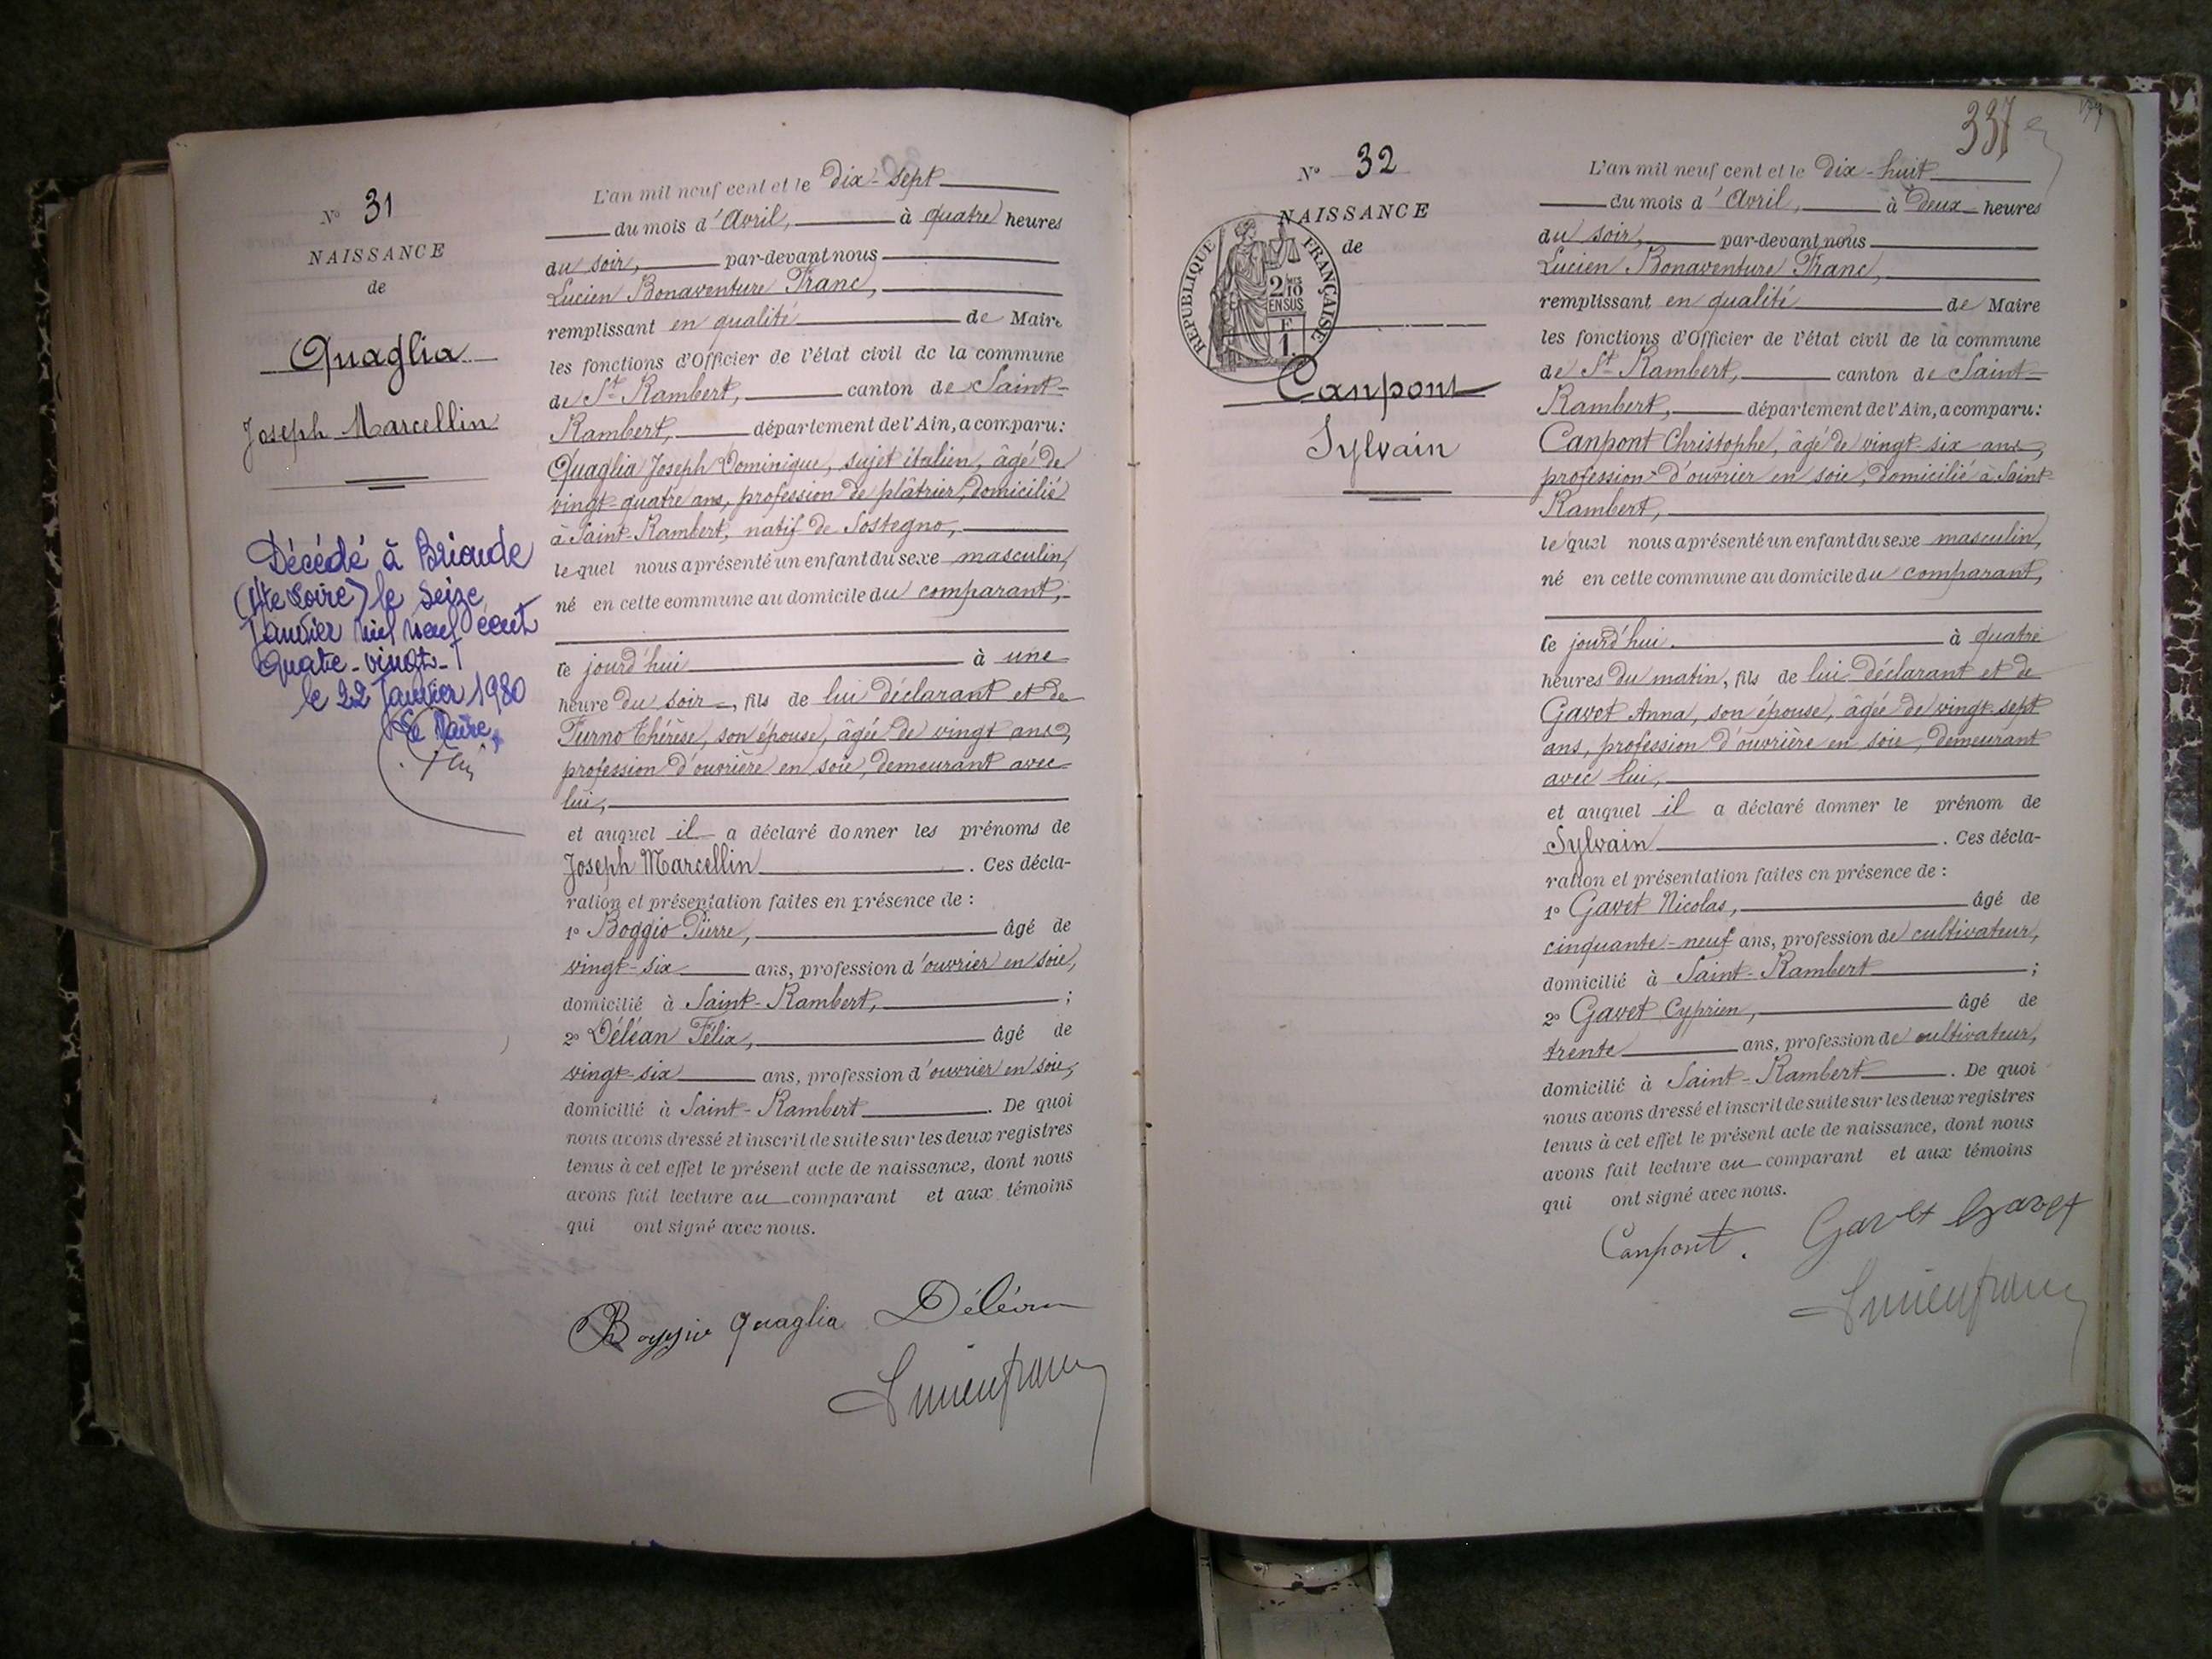 N° 31
NAISSANCE
de
Quaglia
Joseph Marcellin
Décédé à Brioude
(Hte Loire) le seize
Janvier mil neuf cent
Quatre-vingt
le 22 Janvier 1980
Le Maire,
L'an mil neuf cent et le Dix-sept
du mois d'Avril, à quatre heures
du soir, par-devant nous
Lucien Bonaventure Franc,
remplissant en qualité de Maire
les fonctions d'Officier de l'état civil de la commune
de St Rambert, canton de Saint-
Rambert, département de l'Ain, a comparu:
Quaglia Joseph Dominique, sujet italien, âgé de
vingt-quatre ans, profession de plâtrier, domicilié
à Saint-Rambert, natif de Sostegno,
lequel nous a présenté un enfant du sexe masculin,
né en cette commune au domicile du comparant,
ce jourd'hui à une
heure du soir, fils de lui déclarant et de
Furno Thérèse, son épouse, âgée de vingt ans,
profession d'ouvrière en soie, demeurant avec
lui,
et auquel il a déclaré donner les prénoms de
Joseph Marcellin. Ces décla-
ration et présentation faites en présence de :
1° Boggio Pierre, âgé de
vingt-six ans, profession d'ouvrier en soie,
domicilié à Saint-Rambert, ;
2° Déléan Félix, âgé de
vingt-six ans, profession d'ouvrier en soie,
domicilié à Saint-Rambert. De quoi
nous avons dressé et inscrit de suite sur les deux registres
tenus à cet effet le présent acte de naissance, dont nous
avons fait lecture au comparant et aux témoins
qui ont signé avec nous.
Boggio Quaglia Déléan
Lucien franc
337
N° 32
NAISSANCE
de
RÉPUBLIQUE FRANÇAISE
2/10
EN SUS
F
1.
Canpont
Sylvain
L'an mil neuf cent et le Dix-huit
du mois d'Avril, à Deux heures
du soir, par-devant nous
Lucien Bonaventure Franc,
remplissant en qualité de Maire
les fonctions d'Officier de l'état civil de la commune
de St Rambert, canton de Saint-
Rambert, département de l'Ain, a comparu:
Canpont Christophe, âgé de vingt-six ans,
profession d'ouvrier en soie, domicilié à Saint-
Rambert,
lequel nous a présenté un enfant du sexe masculin,
né en cette commune au domicile du comparant,
ce jourd'hui à quatre
heures du matin, fils de lui déclarant et de
Gavet Anna, son épouse, âgée de vingt-sept
ans, profession d'ouvrière en soie, demeurant
avec lui,
et auquel il a déclaré donner le prénom de
Sylvain. Ces décla-
ration et présentation faites en présence de :
1° Gavet Nicolas, âgé de
cinquante-neuf ans, profession de cultivateur,
domicilié à Saint-Rambert ;
2° Gavet Cyprien, âgé de
trente ans, profession de cultivateur,
domicilié à Saint-Rambert. De quoi
nous avons dressé et inscrit de suite sur les deux registres
tenus à cet effet le présent acte de naissance, dont nous
avons fait lecture au comparant et aux témoins
qui ont signé avec nous.
Canpont. Gavet Gavet
Lucien franc